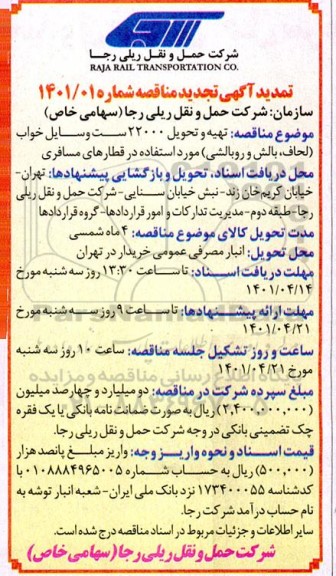 شرکت حمل و نقل ریلی رجا
RAJA RAIL TRANSPORTATION CO.
تمدید آگهی تجدید مناقصه شماره ۱۴۰۱/۰۱
سازمان: شرکت حمل و نقل ریلی رجا (سهامی خاص)
موضوع مناقصه: تهیه و تحویل ۲۲۰۰۰ ست وسایل خواب
(لحاف، بالش و روبالشی) مورد استفاده در قطارهای مسافری
محل دریافت اسناد، تحویل و بازگشایی پیشنهادها: تهران-
خیابان کریم‌خان زند- نبش خیابان سنایی- شرکت حمل و نقل ریلی
رجا- طبقه دوم- مدیریت تدارکات و امور قراردادها- گروه قراردادها
مدت تحویل کالای موضوع مناقصه: ۴ ماه شمسی
محل تحویل: انبار مصرفی عمومی خریدار در تهران
مهلت دریافت اسناد: تا ساعت ۱۳:۳۰ روز سه شنبه مورخ
۱۴۰۱/۰۴/۱۴
مهلت ارائه پیشنهادها: تا ساعت ۹ روز سه شنبه مورخ
۱۴۰۱/۰۴/۲۱
ساعت و روز تشکیل جلسه مناقصه: ساعت ۱۰ روز سه شنبه
مورخ ۱۴۰۱/۰۴/۲۱
مبلغ سپرده شرکت در مناقصه: دو میلیارد و چهارصد میلیون
(۲,۴۰۰,۰۰۰,۰۰۰) ریال به صورت ضمانت نامه بانکی یا یک فقره
چک تضمینی بانکی در وجه شرکت حمل و نقل ریلی رجا.
قیمت اسناد و نحوه واریز وجه: واریز مبلغ پانصد هزار
(۵۰۰,۰۰۰) ریال به حساب شماره ۰۱۰۸۸۸۴۹۶۵۰۰۵ با
کد شناسه ۱۷۳۴۰۰۰۵۵ نزد بانک ملی ایران- شعبه انبار توشه به
نام حساب درآمد شرکت رجا.
سایر اطلاعات و جزئیات مربوط در اسناد مناقصه درج شده است.
شرکت حمل و نقل ریلی رجا (سهامی خاص)